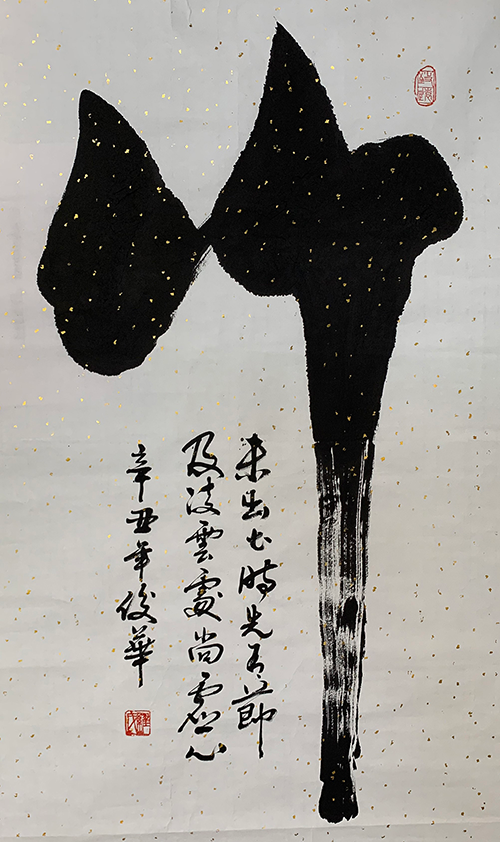 竹
未出土時先有節
及凌雲處尚虛心
辛丑年俊華